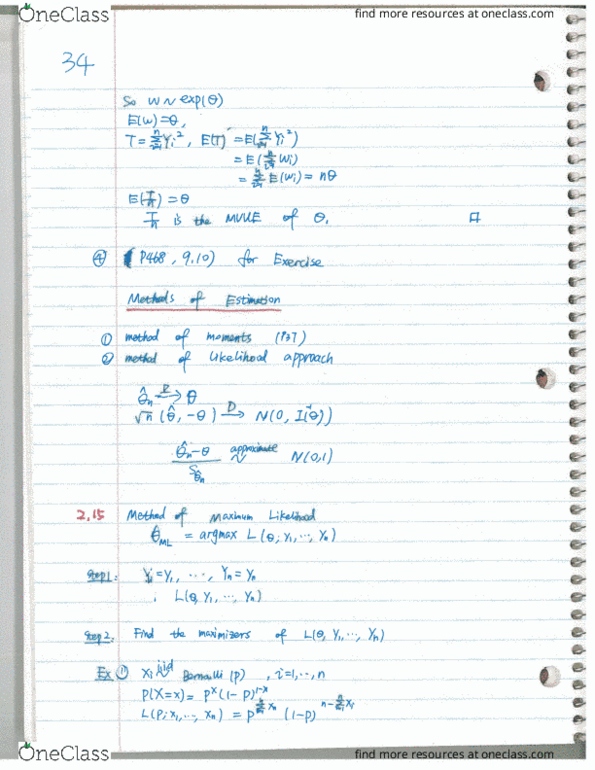 OneClass
find more resources at oneclass.com
34
So W ~ exp(θ)
E(W) = θ,
T = Σⁿᵢ₌₁ Yᵢ², E(T) = E(Σⁿᵢ₌₁ Yᵢ²)
= E(Σⁿᵢ₌₁ Wᵢ)
= Σⁿᵢ₌₁ E(Wᵢ) = nθ
E(T/n) = θ
T/n is the MVUE of θ. □
④ (P468, 9.10) for Exercise
Methods of Estimation
① method of moments (P37)
② method of Likelihood approach
θ̂ₙ →ᴾ θ
√n (θ̂, -θ) →ᴰ N(0, I⁻¹(θ))
(θ̂ₙ-θ)/S_θ̂ₙ approximate ~ N(0,1)
2,15 Method of Maximum Likelihood
θ̂ML = argmax L(θ; Y₁, ..., Yₙ)
Step1: Y₁=y₁, ..., Yₙ=yₙ
; L(θ, Y₁, ..., Yₙ)
Step2: Find the maximizers of L(θ, Y₁, ..., Yₙ)
Ex ① Xᵢ iid~ Bernoulli (p), i=1, ..., n
P(X=x) = pˣ(1-p)¹⁻ˣ
L(P; x₁, ..., xₙ) = p^(Σⁿᵢ₌₁ xₙ) (1-p)^(n-Σⁿᵢ₌₁ xᵢ)
OneClass
find more resources at oneclass.com